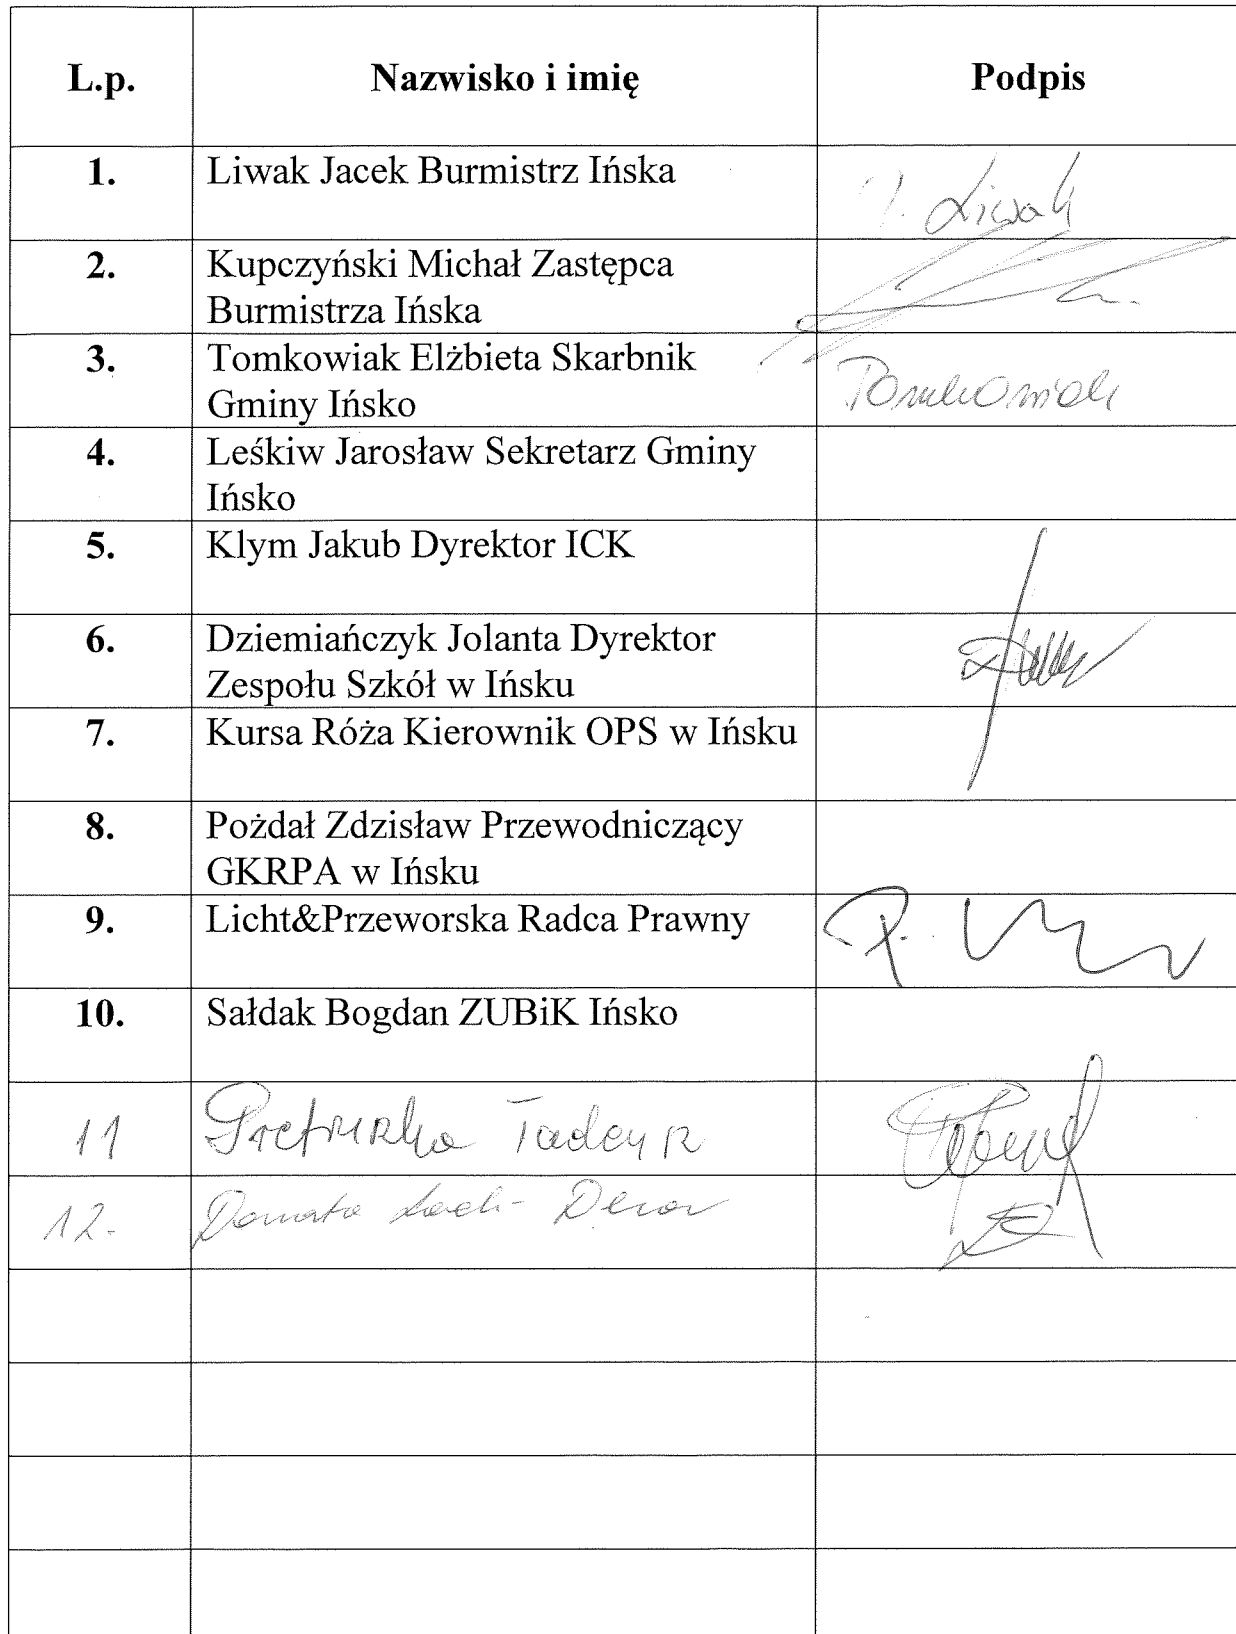 L.p. Nazwisko i imię Podpis
1. Liwak Jacek Burmistrz Ińska J. Liwak
2. Kupczyński Michał Zastępca
Burmistrza Ińska
3. Tomkowiak Elżbieta Skarbnik
Gminy Ińsko Tomkowiak
4. Leśkiw Jarosław Sekretarz Gminy
Ińsko
5. Klym Jakub Dyrektor ICK
6. Dziemiańczyk Jolanta Dyrektor
Zespołu Szkół w Ińsku
7. Kursa Róża Kierownik OPS w Ińsku
8. Pożdał Zdzisław Przewodniczący
GKRPA w Ińsku
9. Licht&Przeworska Radca Prawny
10. Sałdak Bogdan ZUBiK Ińsko
11 Tadeusz
12. Donata